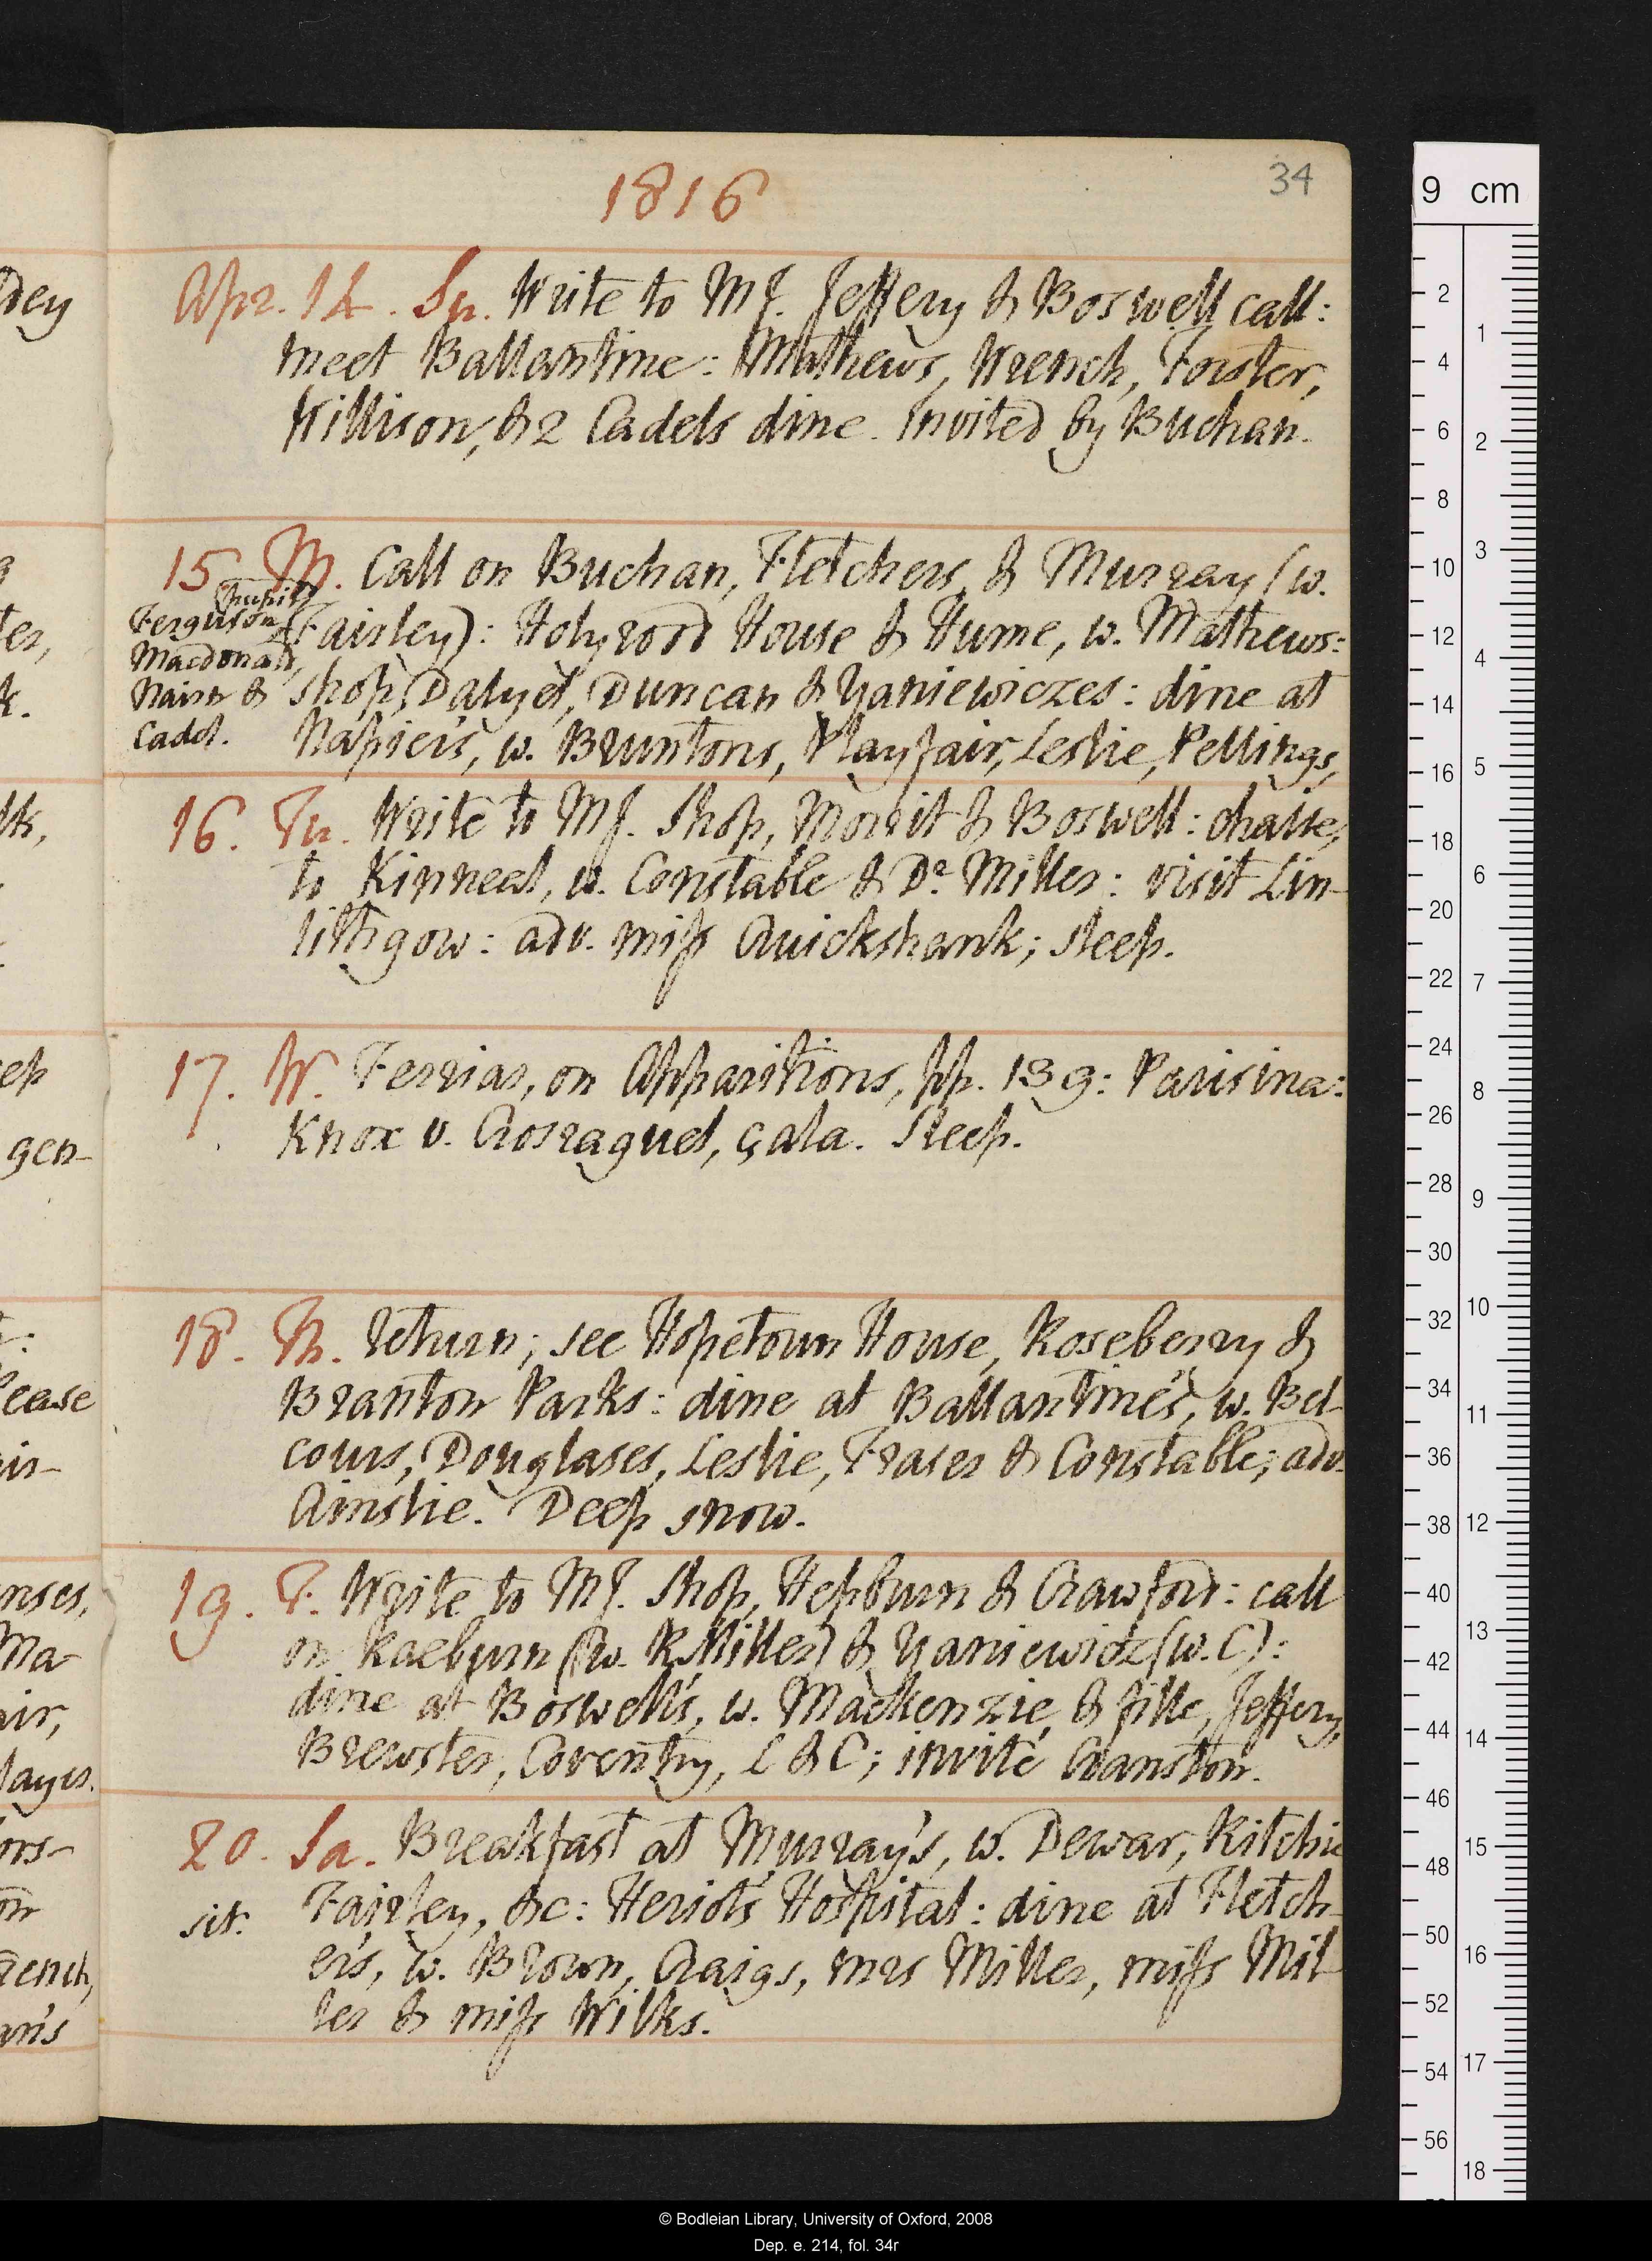 34
1816
Apr. 14. Su. Write to MJ. Jeffery & Boswell call:
meet Ballantine: Mathews, Wrench, Forster,
Willison, & 2 Cadels dine. Invited by Buchan.
15. M. Call on Buchan, Fletchers, & Murray (w.
(pupil)
Fairley): Holyrood House & Hume, w. Mathews:
shop, Dalyel, Duncan & Yaniewiczes: dine at
Napier's, w. Bruntons, Playfair, Leslie, Pellings,
Ferguson,
Macdonald,
Nairn &
Cadel.
16. Tu. Write to MJ. Shop, Morrit & Boswell: chaise,
to Kinneel, w. Constable & Dr Miller: visit Lin-
lithgow: adv. miss Cruickshank; sleep.
17. W. Ferriar, on Apparitions, pp. 139: Parisina:
Knox v. Crosraguel, çala. Sleep.
18. Th. Return; see Hopetoun House, Roseberry &
Branton Parks: dine at Ballantine's, w. Bel-
cours, Douglases, Leslie, Fraser & Constable; adv.
Ainslie. Deep snow.
19. F. Write to MJ. Shop, Hepburn & Crawford: call
on Raeburn (w. R Miller) & Yaniewicz (w. C):
dine at Boswell's, w. Mackenzie & fille, Jeffery,
Brewster, Coventry, L & C; invite Cranston.
20. Sa. Breakfast at Murray's, w. Dewar, Ritchie
sit. Fairley, &c: Heriot's Hospital: dine at Fletch-
er's, w. Brown, Craigs, mrs Miller, miss Mil
ler & miss Wilks.
9 cm
© Bodleian Library, University of Oxford, 2008
Dep. e. 214, fol. 34r